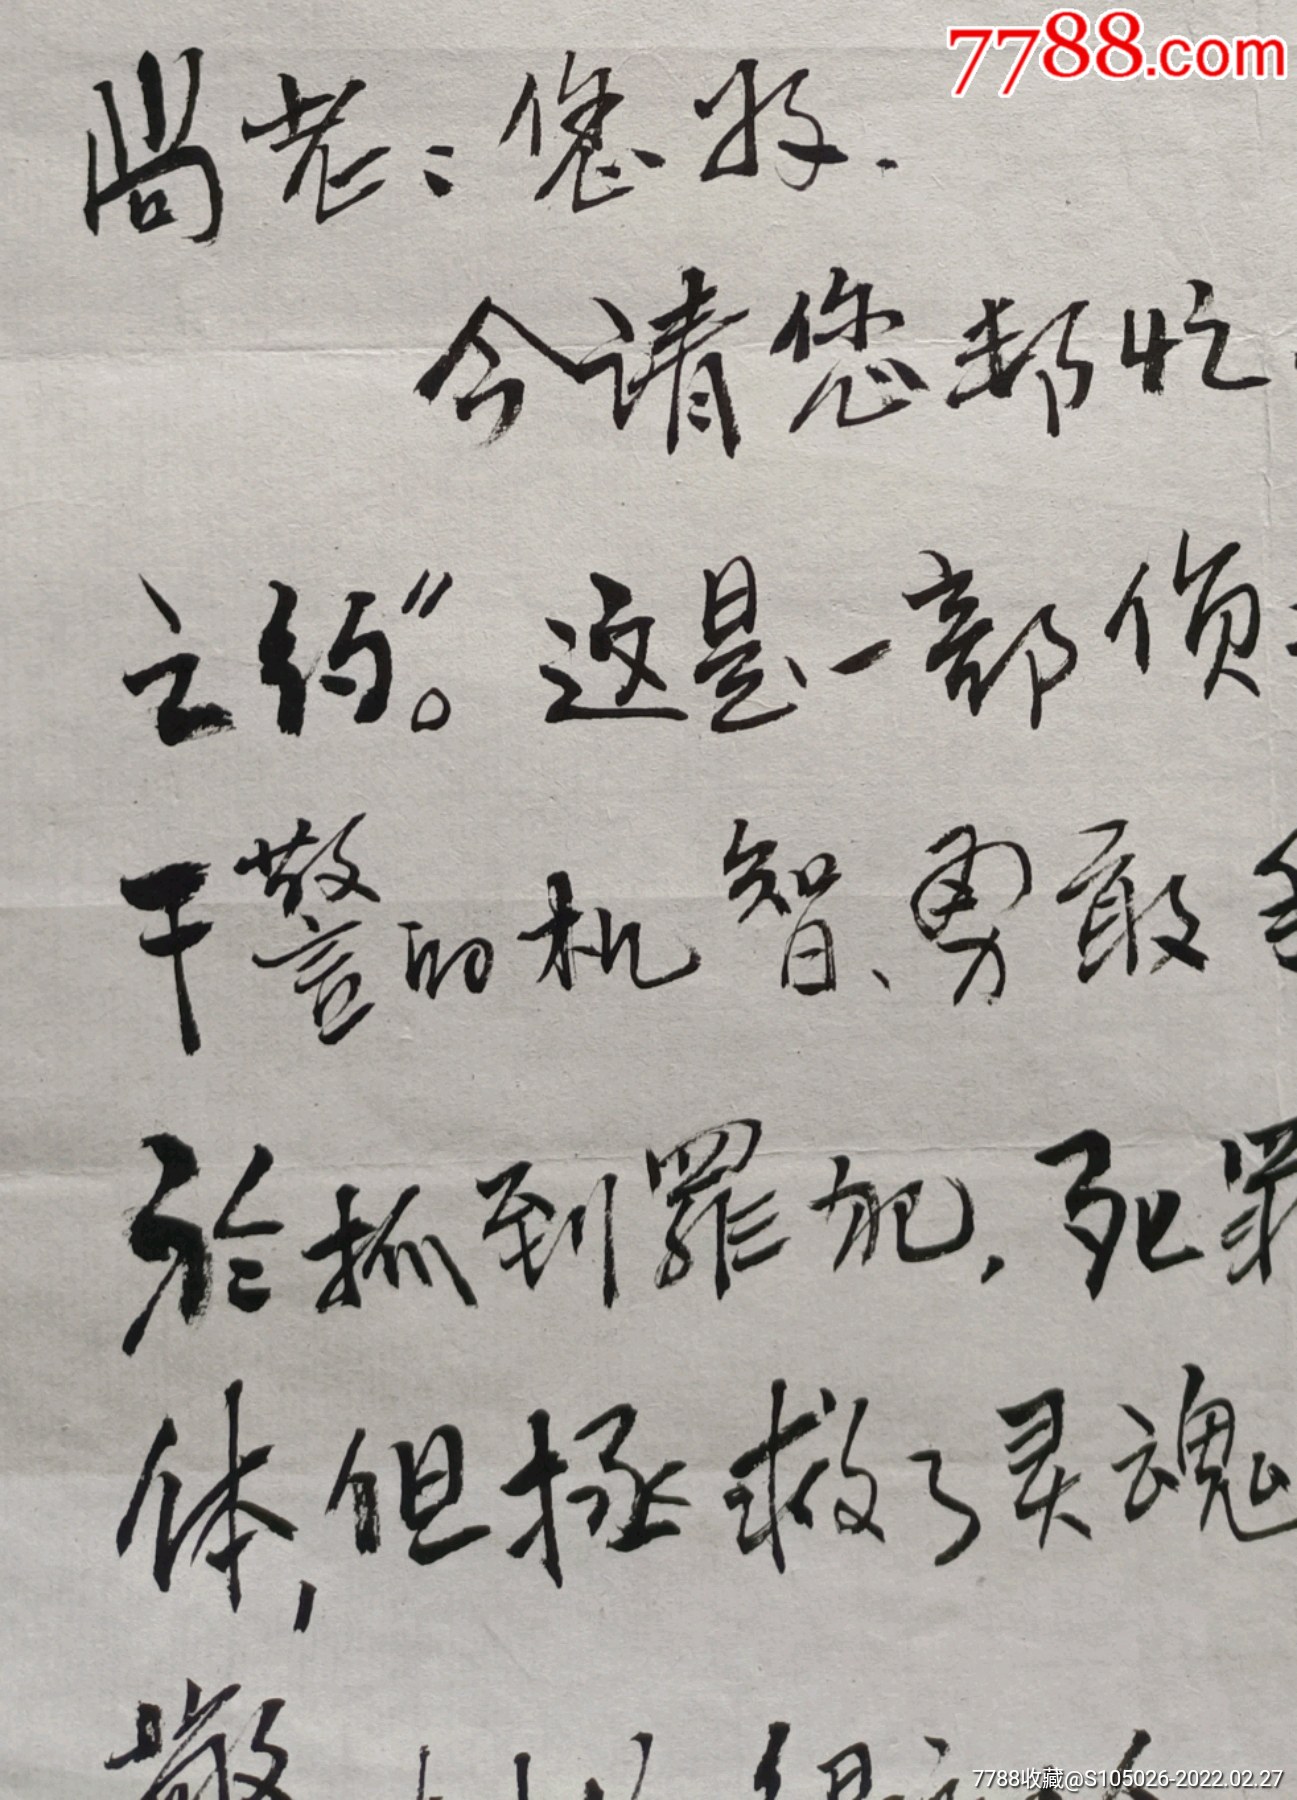 7788.com
尚老:您好.
今请您帮忙
之约”。这是一部侦
干警的机智、勇敢
於抓到罪犯,死罪
体,但拯救了灵魂
7788收藏@S105026-2022.02.27